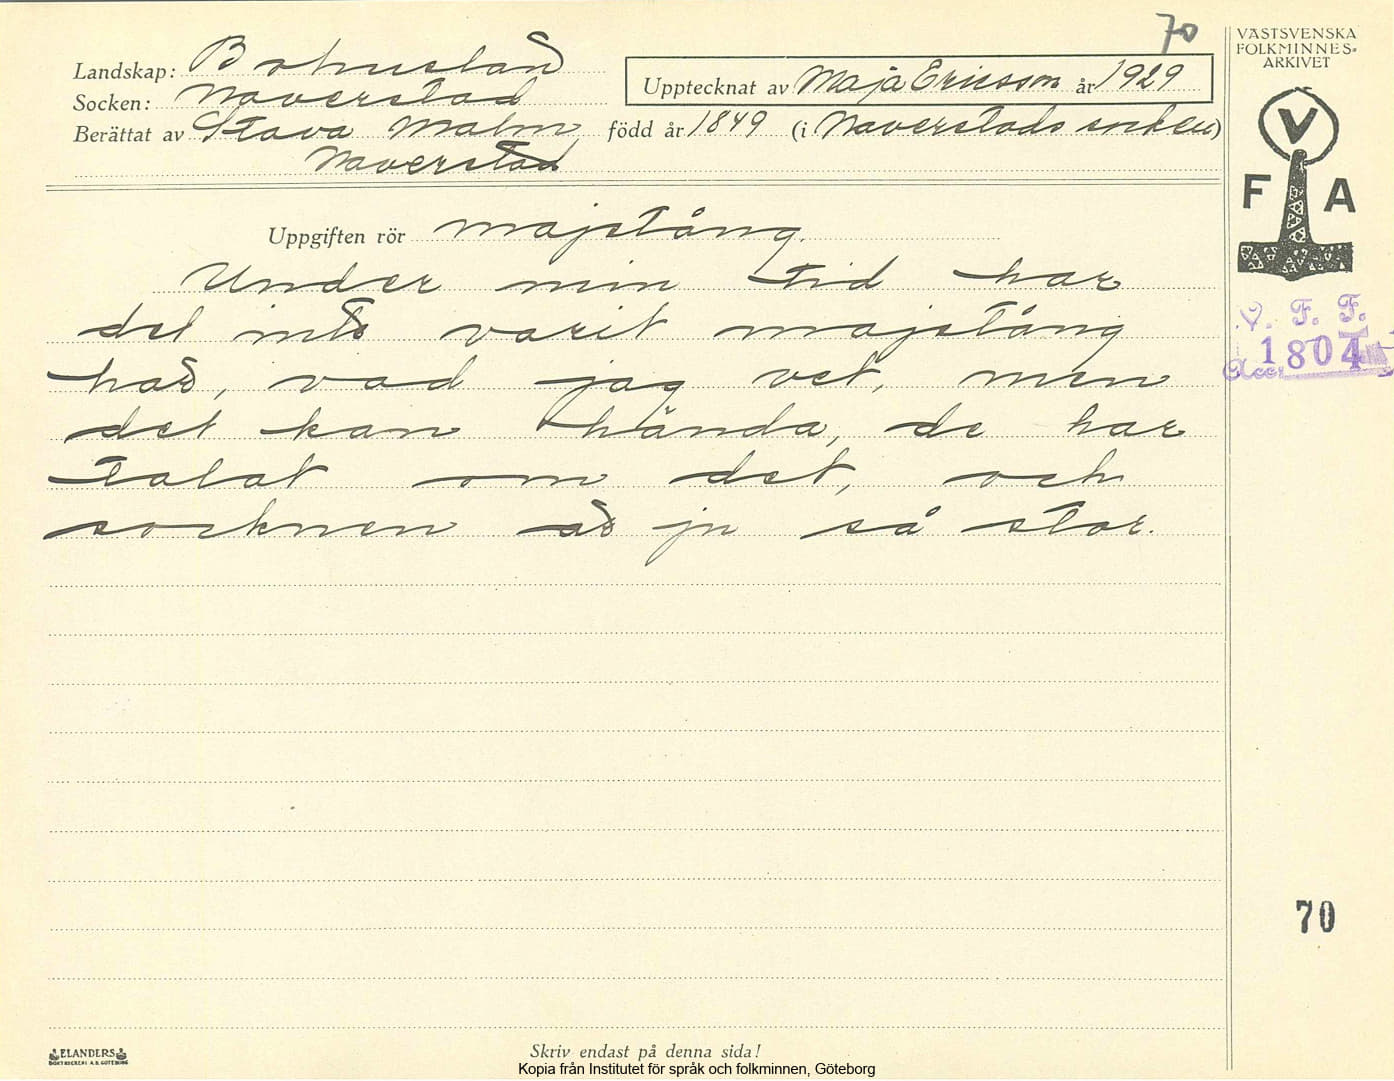 70
VÄSTSVENSKA
FOLKMINNES-
ARKIVET
Landskap: Bohuslän
Upptecknat av Maja Ericsson år 1929
Socken: Naverstad
Berättat av Stava Malm, född år 1849 (i Naverstads socken)
Naverstad
V
F A
Uppgiften rör majstång.
Under min tid har
det inte varit majstång
här, vad jag vet, men
det kan hända, de har
talat om det, och
socknen är ju så stor.
V. F. F.
Acc. 1804
70
ELANDERS
BOKTRYCKERI A.B. GÖTEBORG
Skriv endast på denna sida!
Kopia från Institutet för språk och folkminnen, Göteborg